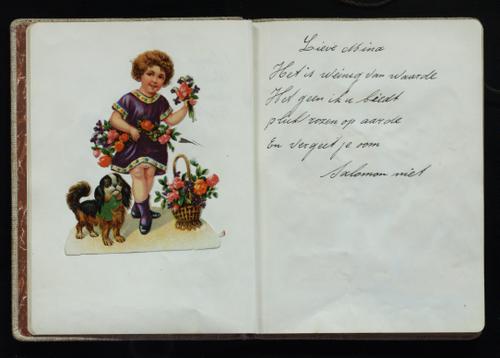 Lieve Mina
Het is weinig van waarde
Het geen ik u biedt
pluk rozen op aarde
En vergeet je oom
Salomon niet